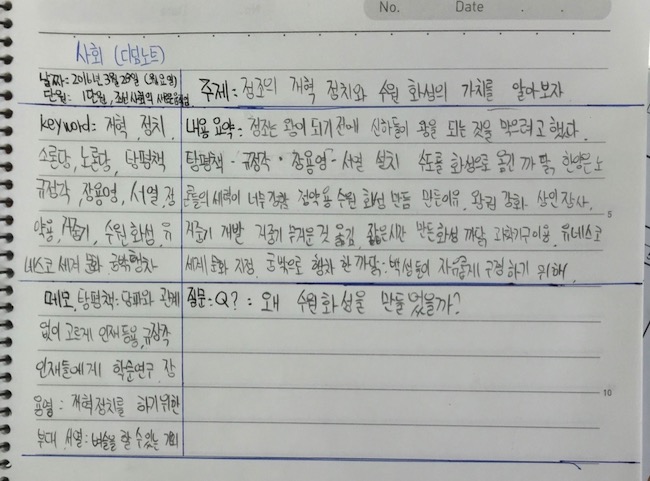 No. Date . .
사회 (디딤노트)
날짜: 2016년 3월 28일 (월요일)
단원: 1단원, 조선 사회의 새로운 움직임
주제: 정조의 개혁 정치와 수원 화성의 가치를 알아보자
keyword: 개혁 정치,
소론당, 노론당, 탕평책
규장각, 장용영, 서얼, 정
약용, 거중기, 수원 화성, 유
네스코 세계 문화 궁밖행차
내용 요약: 정조는 왕이 되기 전에 신하들이 왕을 되는 것을 막으려고 했다.
탕평책 - 규장각 · 장용영 - 서얼 설치 수도를 화성으로 옮긴 까닭, 한양은 노
론들의 세력이 너무 강함 정약용 수원 화성 만듦 만든이유, 왕권 강화 상인 장사,
5
거중기 개발 거중기 무거운 것 옮김, 짧은시간 만든화성 까닭, 과학기구이용, 유네스코
세계 문화 지정, 궁 밖으로 행차 한 까닭: 백성들이 자유롭게 구경하기 위해,
메모, 탕평책: 당파와 관계
없이 고르게 인재 등용, 규장각
인재들에게 학술연구 장
용영: 개혁정치를 하기위한
부대 서얼: 벼슬을 할 수 있는 기회
질문: Q?: 왜 수원 화성을 만들었을까?
10